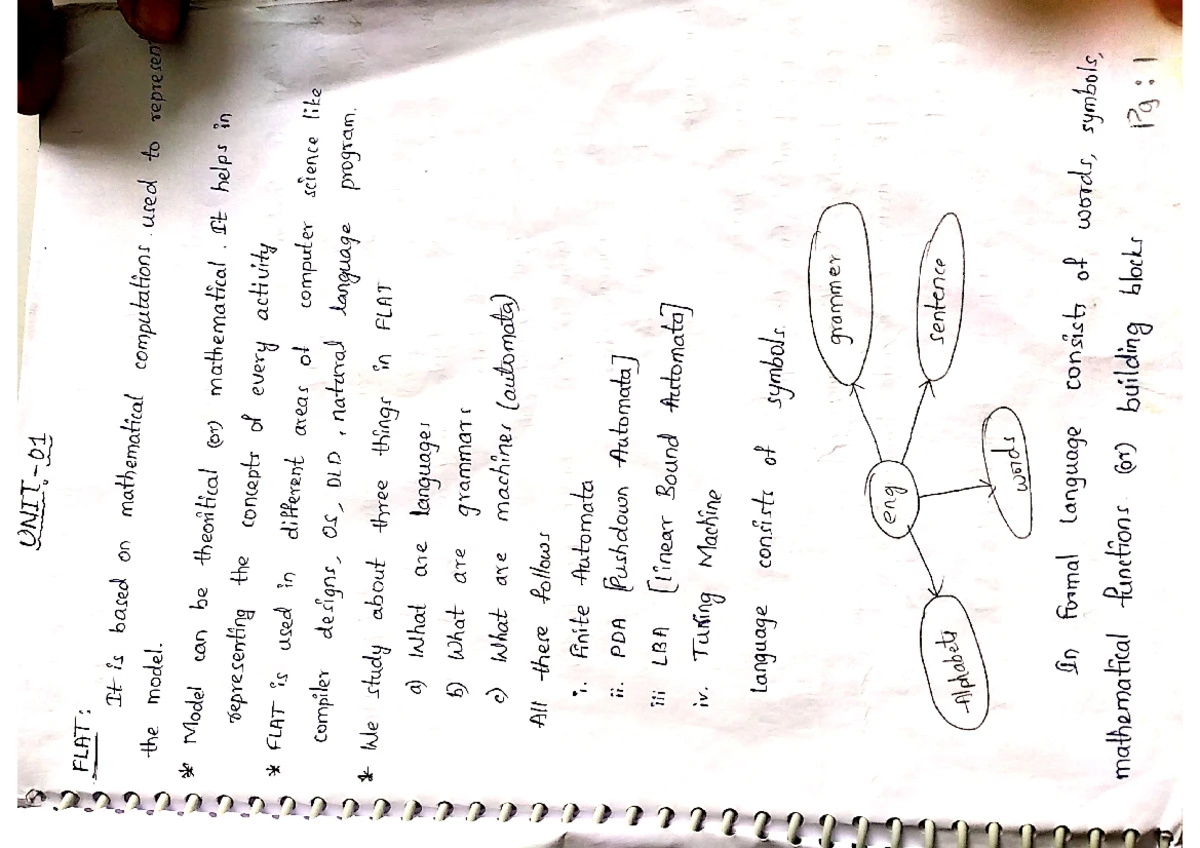 UNIT-01
FLAT:
It is based on mathematical computations used to represent
the model.
* Model can be theoritical (or) mathematical. It helps in
representing the concepts of every activity
* FLAT is used in different areas of computer science like
compiler designs, OS, DLD, natural language program.
* We study about three things in FLAT
a) What are languages
b) What are grammars
c) What are machines (automata)
All there follows
i. Finite Automata
ii. PDA [Pushdown Automata]
iii LBA [linear Bound Automata]
iv. Turing Machine
language consists of symbols.
grammer
eng
sentence
words
Alphabets
In Formal language consists of words, symbols,
mathematical functions (or) building blocks
Pg: 1